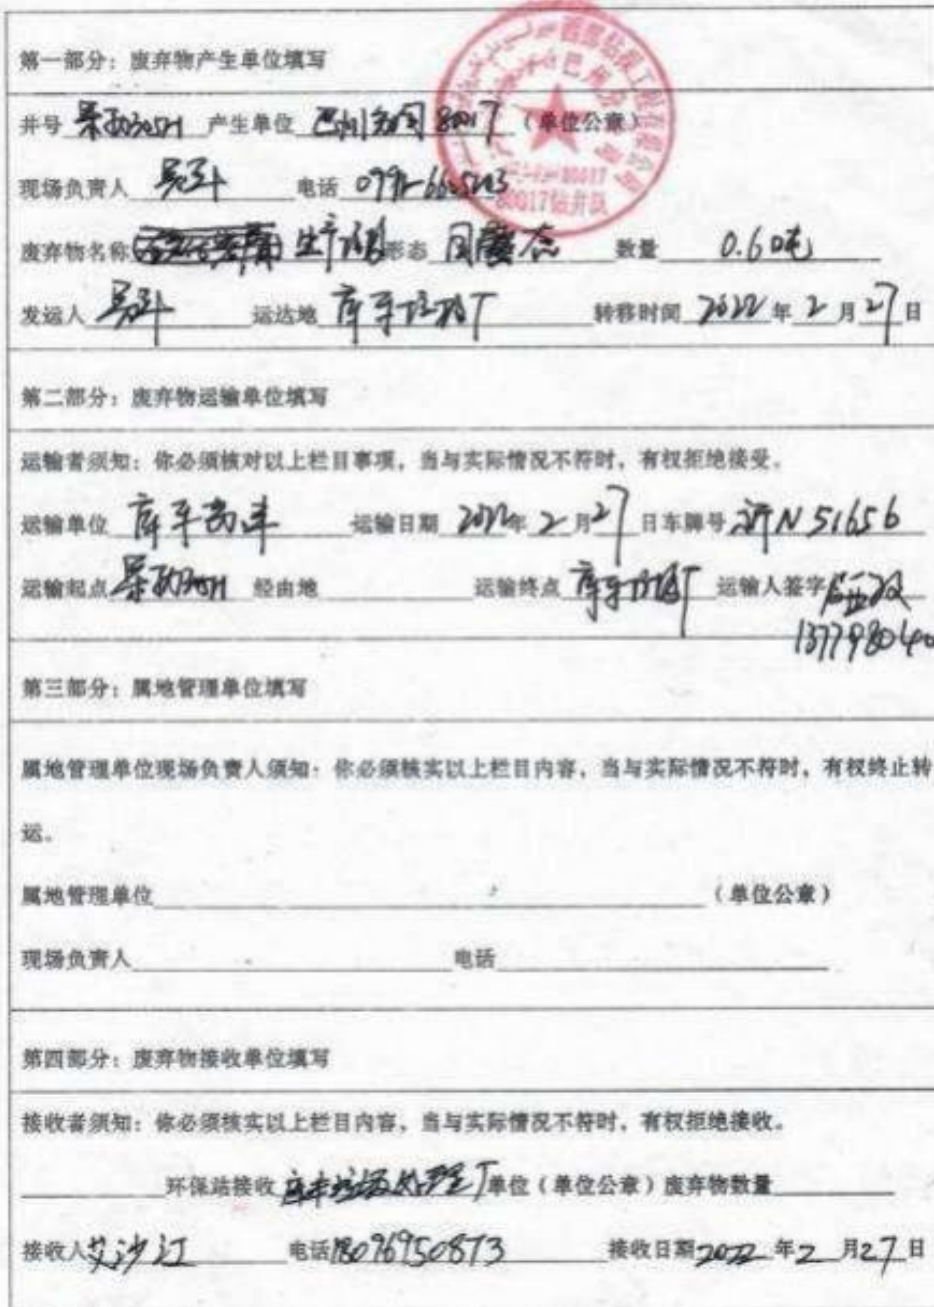 第一部分：废弃物产生单位填写
井号 产生单位 巴州分公司 80017 （单位公章）
现场负责人 电话
80017钻井队
废弃物名称 生产垃圾 形态 固态 数量 0.60吨
发运人 运达地 库车垃圾厂 转移时间 2022 年 2 月 27 日
第二部分：废弃物运输单位填写
运输者须知：你必须核对以上栏目事项，当与实际情况不符时，有权拒绝接受。
运输单位 库车 运输日期 2022 年 2 月 27 日 车牌号 新N 51656
运输起点 经由地 运输终点 库车垃圾厂 运输人签字
第三部分：属地管理单位填写
属地管理单位现场负责人须知：你必须核实以上栏目内容，当与实际情况不符时，有权终止转
运。
属地管理单位 （单位公章）
现场负责人 电话
第四部分：废弃物接收单位填写
接收者须知：你必须核实以上栏目内容，当与实际情况不符时，有权拒绝接收。
环保站接收 库车垃圾处理厂 单位（单位公章）废弃物数量
接收人 艾沙江 电话 18096950873 接收日期 2022 年 2 月 27 日